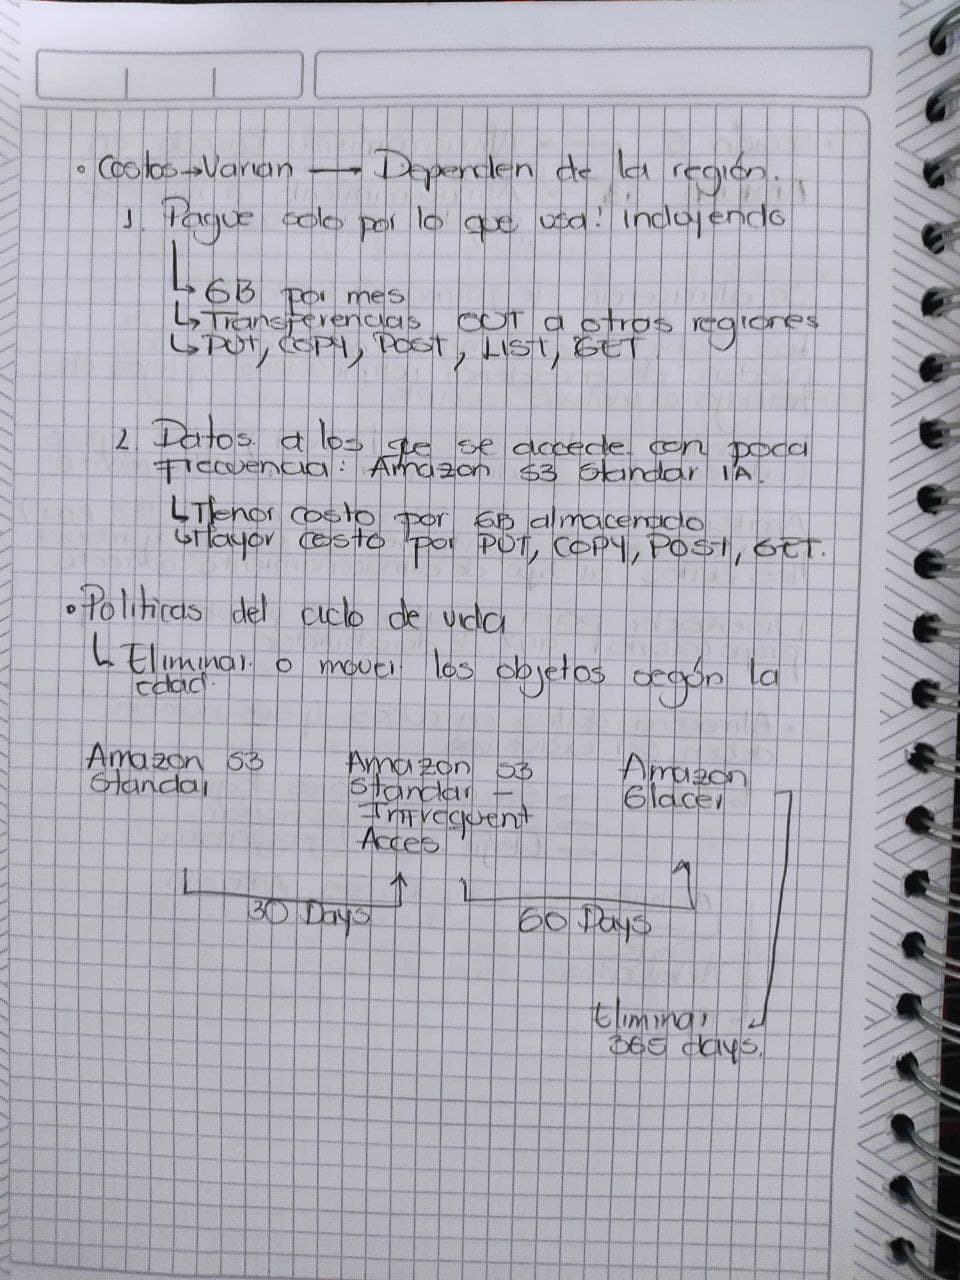 • Costos → Varian — Dependen de la región.
1. Pague solo por lo que usa: incluyendo
↳ GB por mes
↳ Transferencias OUT a otros regiones
↳ PUT, COPY, POST, LIST, GET
2. Datos a los que se accede con poca
frecuencia: Amazon S3 Standar IA.
↳ Menor costo por GB almacenado
↳ Mayor costo por PUT, COPY, POST, GET.
• Politicas del ciclo de vida
↳ Eliminar o mover los objetos según la
edad.
Amazon S3
Standar
Amazon S3
Standar -
Infrequent
Acces
Amazon
Glacer
30 Days
60 Days
Eliminar
365 days.